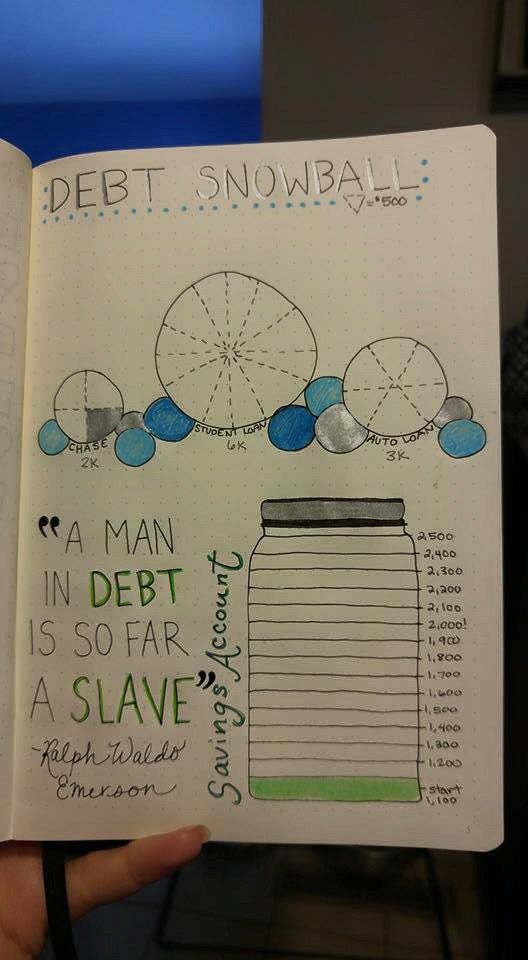 DEBT SNOWBALL
=$500
CHASE
2K
STUDENT LOAN
6K
AUTO LOAN
3K
"A MAN
IN DEBT
IS SO FAR
A SLAVE"
-Ralph Waldo
Emerson
Savings Account
2,500
2,400
2,300
2,200
2,100
2,000!
1,900
1,800
1,700
1,600
1,500
1,400
1,300
1,200
start
1,100